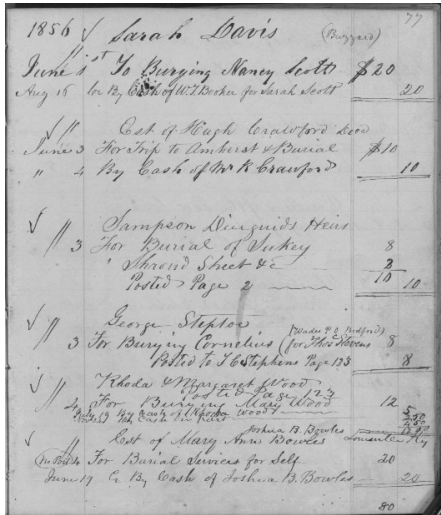 77
1856 Sarah Davis (Buzzard)
June 1st To Burying Nancy Scott $20
Aug 16 By Cash of W. T. Booker for Sarah Scott 20
" Est of Hugh Crawford Decd
June 3 For Trip to Amherst & Burial $10
" 4 By Cash of Mr R Crawford 10
" Sampson Diuguids Heirs
3 For Burial of Sukey 8
" Shroud Sheet &c 2
10
Posted Page 2 10
" George Steptoe
3 For Burying Cornelius (for Thos Stevens 8
Posted to T C Stephens Page 123 8
" Rhoda & Margaret Wood
Posted Page 123
4 For Burying Mary Wood 12
July 19 By Cash of Rhoda Wood 5
Joshua B. Bowles
" Est of Mary Ann Bowles
4 For Burial Services for Self 20
June 19 Cr By Cash of Joshua B. Bowles 20
80